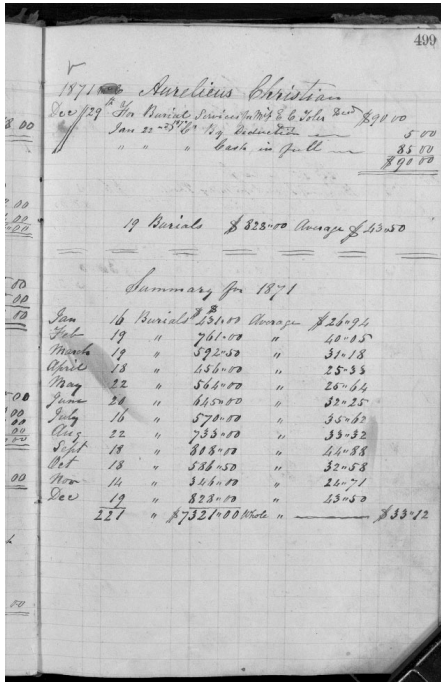 499
1871 Aurelicus Christian
Dec 29th For Burial Services for Mrs E C Toler Decd $90 00
Jan 22nd 1872 Cr By Deduction 5 00
" " " Cash in full 85 00
$90 00
19 Burials $828"00 Average $43"50
Summary for 1871
Jan 16 Burials $431"00 Average $26"94
Feb 19 " 761"00 " 40"05
March 19 " 592"50 " 31"18
April 18 " 456"00 " 25"33
May 22 " 564"00 " 25"64
June 20 " 645"00 " 32"25
July 16 " 570"00 " 35"62
Aug 22 " 733"00 " 33"32
Sept 18 " 808"00 " 44"88
Oct 18 " 586"50 " 32"58
Nov 14 " 346"00 " 24"71
Dec 19 " 828"00 " 43"50
221 " $7321"00 Whole " $33"12